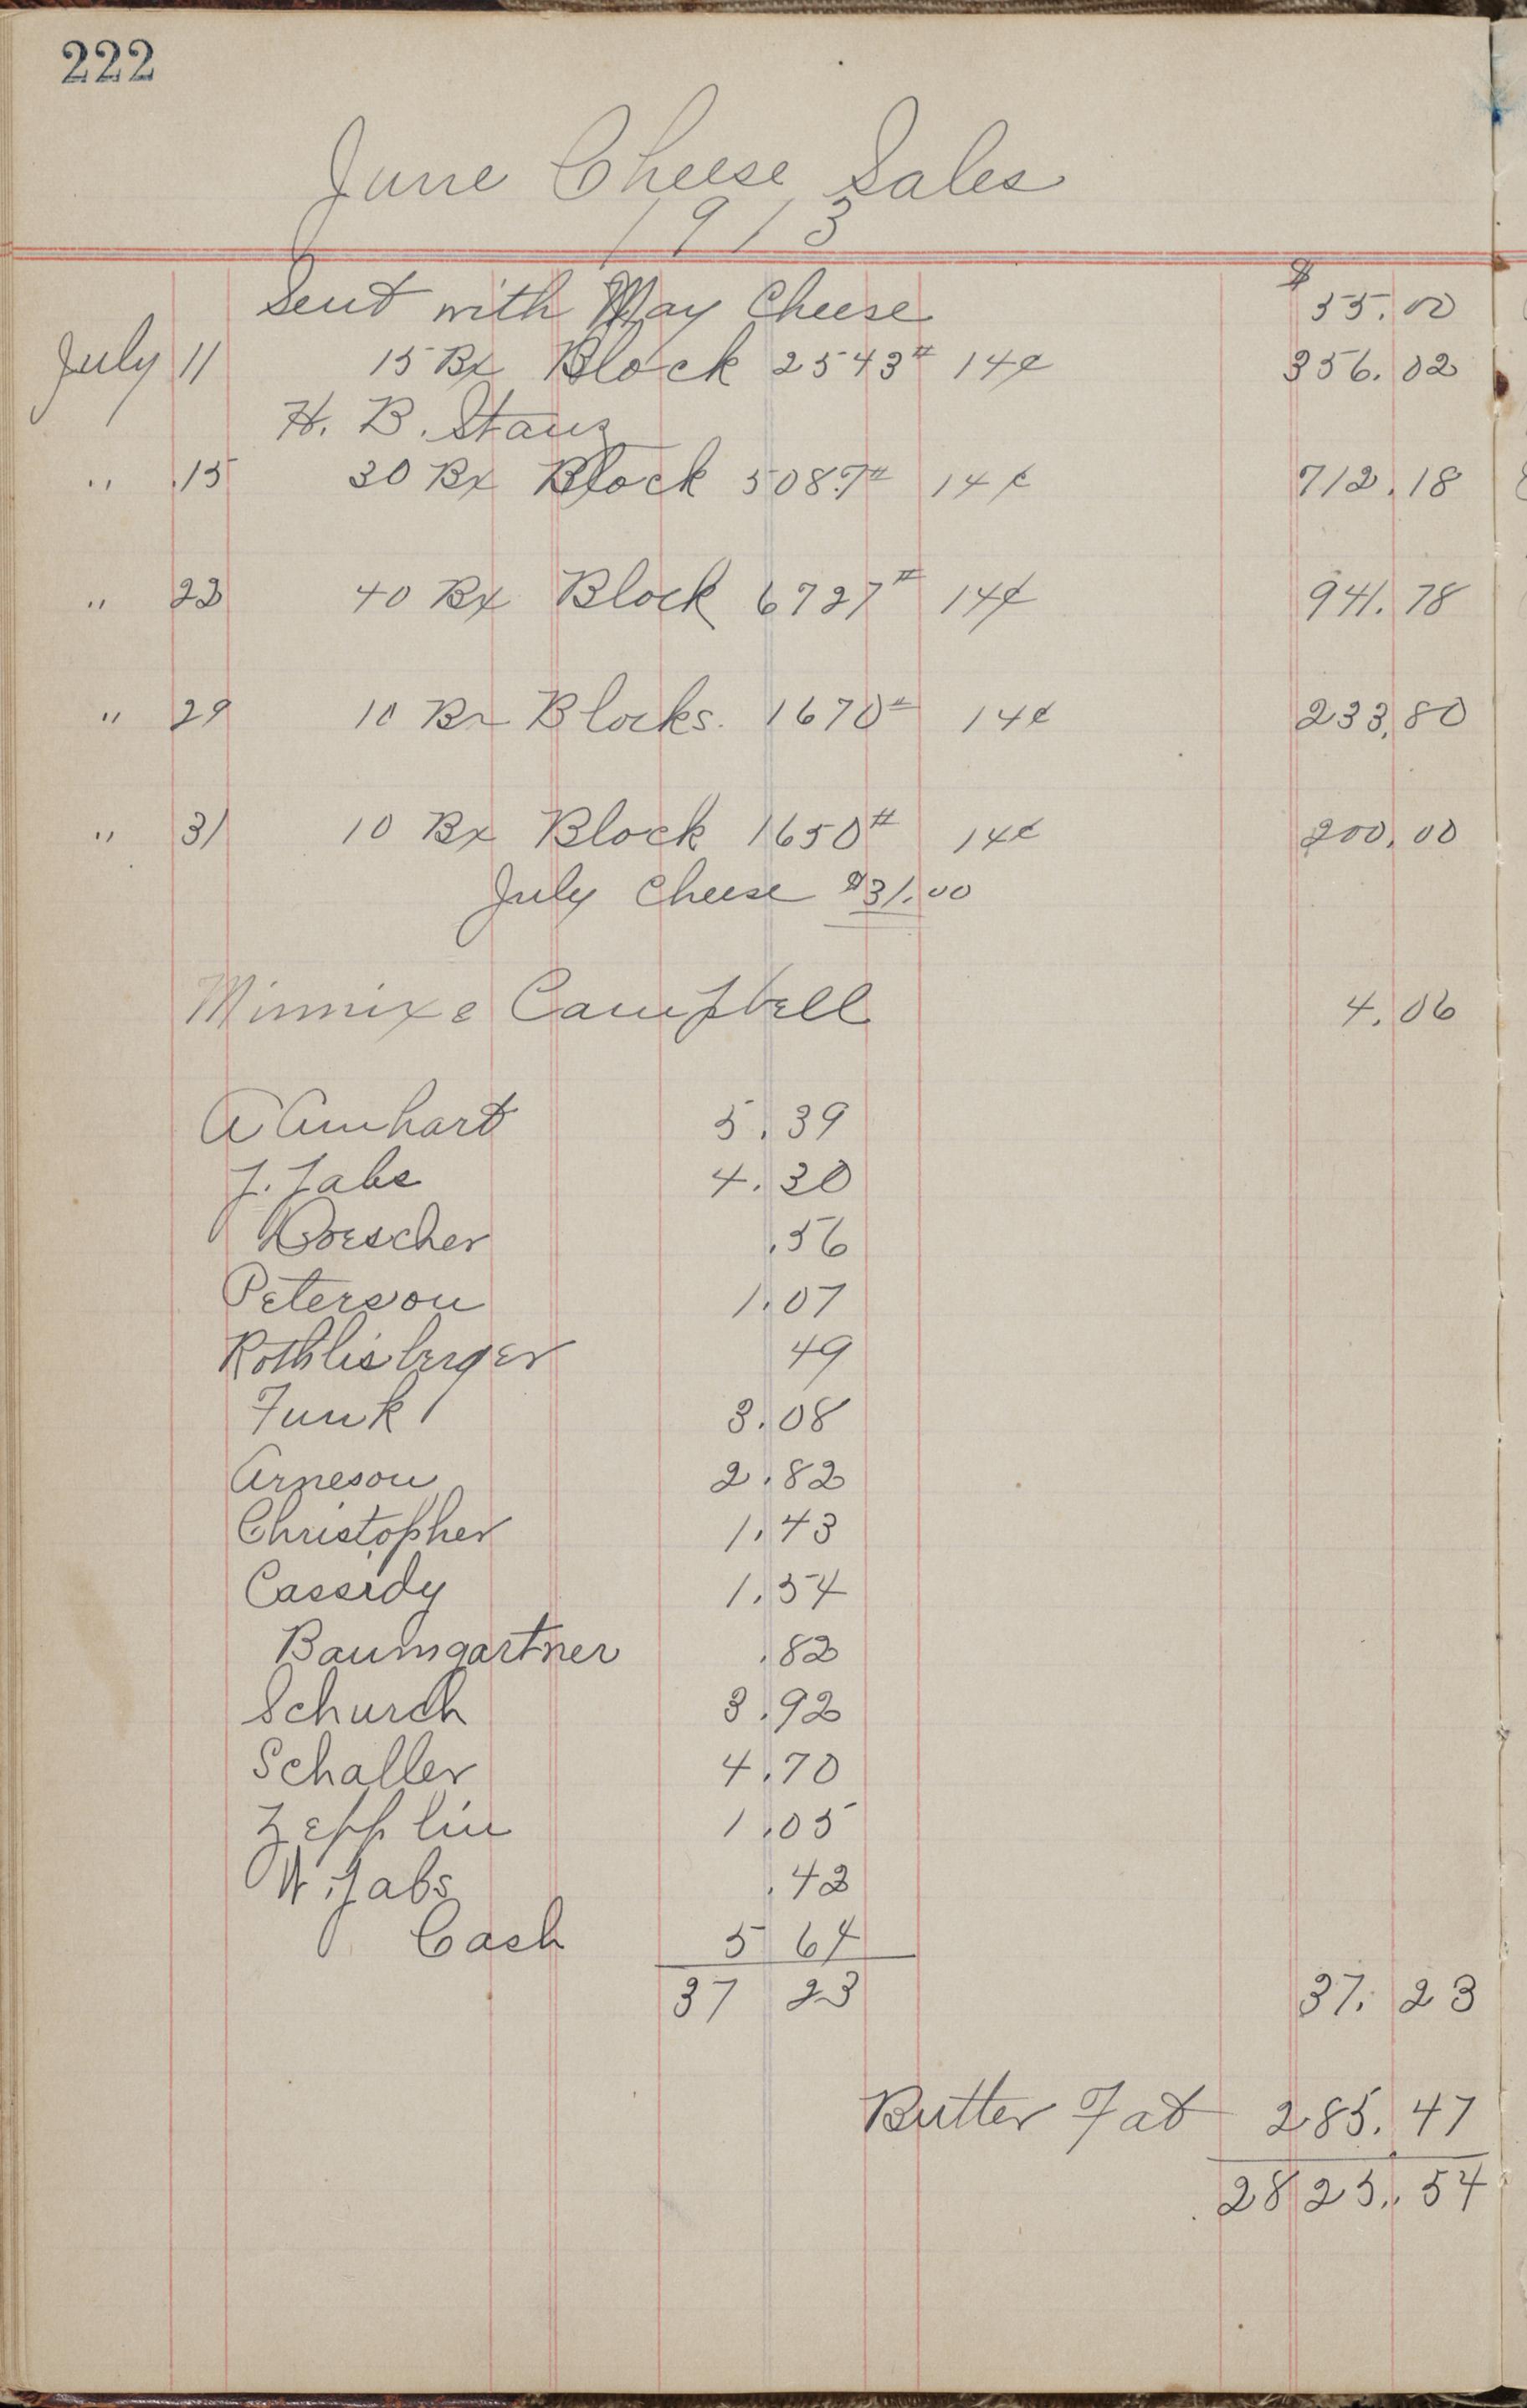 222
June Cheese Sales
1913
Sent with May Cheese $55.00
July 11 15 Bx Block 2543# 14¢ 356.02
H. B. Stanz
" 15 30 Bx Block 5087# 14¢ 712.18
" 22 40 Bx Block 6727# 14¢ 941.78
" 29 10 Bx Blocks. 1670# 14¢ 233.80
" 31 10 Bx Block 1650# 14¢ 200.00
July Cheese $31.00
Minnix & Campbell 4.06
A Amhart 5.39
J. Jabs 4.30
Doescher .56
Peterson 1.07
Rothlisberger 49
Funk 3.08
Arneson 2.82
Christopher 1.43
Cassidy 1.54
Baumgartner .82
Schurch 3.92
Schaller 4.70
Zepplin 1.05
W. Jabs .42
Cash 5 64
37 23 37.23
Butter Fat 285.47
2825.54